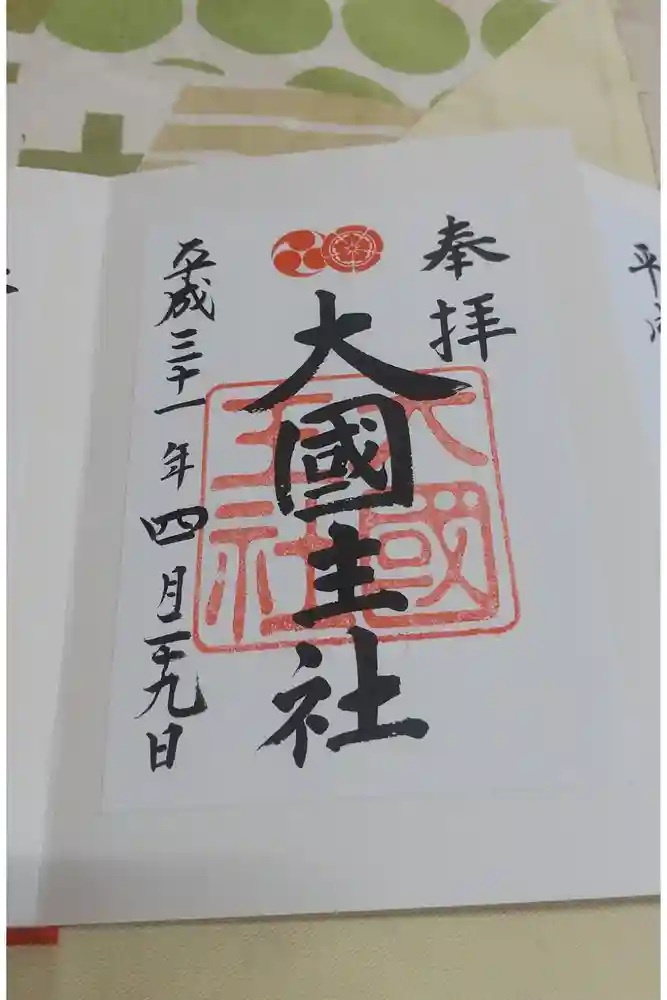 奉拝
大國主社
大國主社
平成三十一年四月二十九日
平